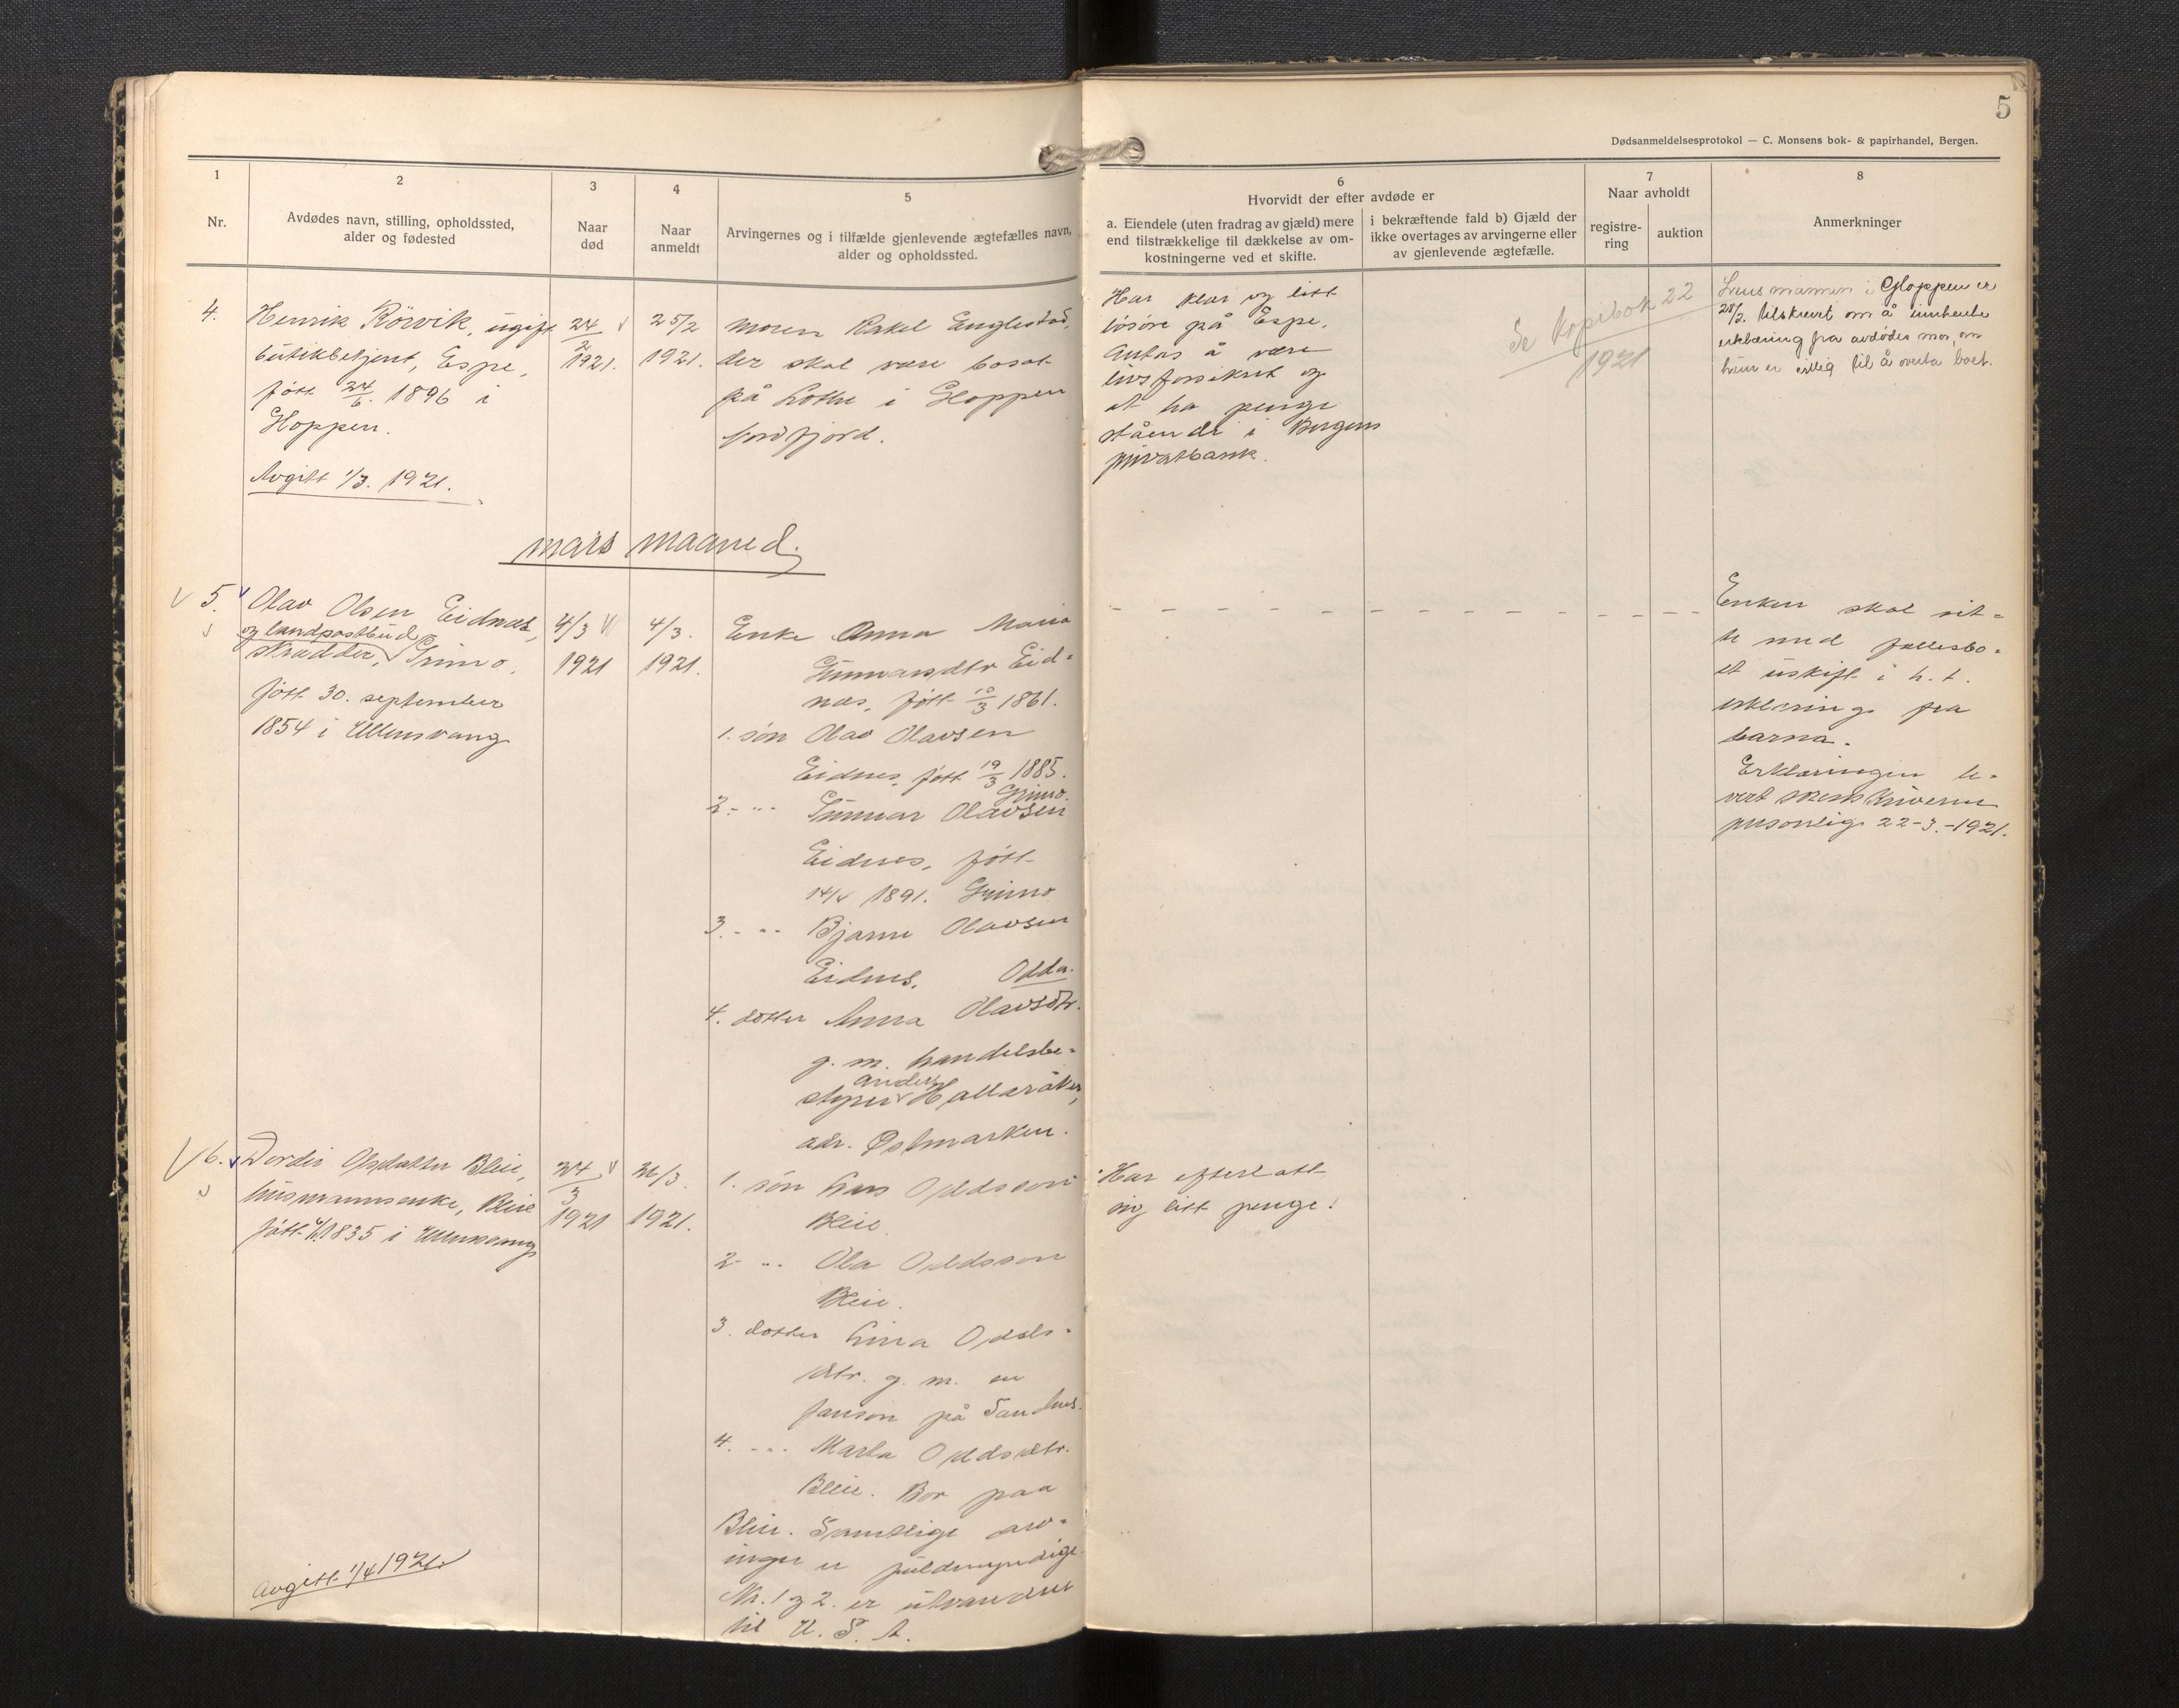 5
Dødsanmeldelsesprotokol — C. Monsens bok- & papirhandel, Bergen.
1
Nr.
2
Avdødes navn, stilling, opholdssted,
alder og fødested
3
Naar
død
4
Naar
anmeldt
5
Arvingernes og i tilfælde gjenlevende ægtefælles navn,
alder og opholdssted.
6
Hvorvidt der efter avdøde er
a. Eiendele (uten fradrag av gjæld) mere
end tilstrækkelige til dækkelse av om-
kostningerne ved et skifte.
i bekræftende fald b) Gjæld der
ikke overtages av arvingerne eller
av gjenlevende ægtefælle.
7
Naar avholdt
registre-
ring
auktion
8
Anmerkninger
4.
Henrik Rörvik, ugift
butikbetjent, Espe,
født 24/6. 1896 i
Gloppen.
Avgitt 1/3. 1921.
24/2
1921.
25/2
1921.
Moren Rakel Englestad,
der skal være bosat
på Lothe i Gloppen
Nordfjord.
Har klær og litt
løsöre på Espe.
Antas å være
livsforsikret og
at ha penge
stående i Bergens
privatbank.
Se kopibok 22
1921
Lensmannen i Gloppen er
28/2. tilskrevet om å innhente
erklæring fra avdødes mor, om
hun er villig til å overta boet.
mars maaned.
5.
Olav Olsen Eidnes,
og landpostbud
skrædder, Grimo.
født 30. september
1854 i Ullensvang
4/3
1921
4/3.
1921.
Enke Anna Maria
Gunnarsdtr Eid-
nes, født 10/3 1861.
1. søn Olav Olavsen
Eidnes, født 19/3 1885.
Grimo.
2. -"- Gunnar Olavsen
Eidnes, født
14/4 1891. Grimo
3. -"- Bjarne Olavsen
Eidnes. Odda.
4. dotter Anna Olavsdtr.
g. m. handelsbe-
anders
styrer Hallaråker,
adr. Østmarken.
Enken skal sit-
te med fællesbo-
et uskift i h. t.
erklæring fra
barna.
Erklæringen le-
vert sorenskriveren
personlig 22-3.-1921.
6.
Dordei Olsdatter Bleie,
husmannsenke, Bleie
født 1835 i Ullensvang
24/3
1921
1921.
1. søn Lars Oddsson
Bleie
2 -"- Ola Oddsson
Bleie.
3. dotter Lina Odds-
dtr. g. m. en
Janson på Sandnes.
4. -"- Marta Oddsdtr.
Bleie. Bor paa
Bleie. Samtlige arv-
inger er fuldmyndige.
Nr. 1 og 2. er utvandret
til U. S. A.
Har efterlatt
sig litt penge!
Avgitt 1/4 1921.